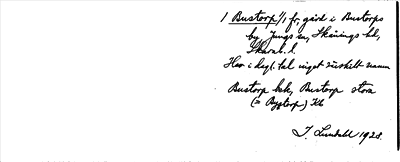 1 Bustorp 1/1 fr, gård i Bustorps
by, Jungs sn, Skånings hd,
Skarab. l.
Har i dagl. tal inget särskilt namn
Bustorp bek, Bustorp stora
(= Bystorp) Kb
J. Lundahl 1928.